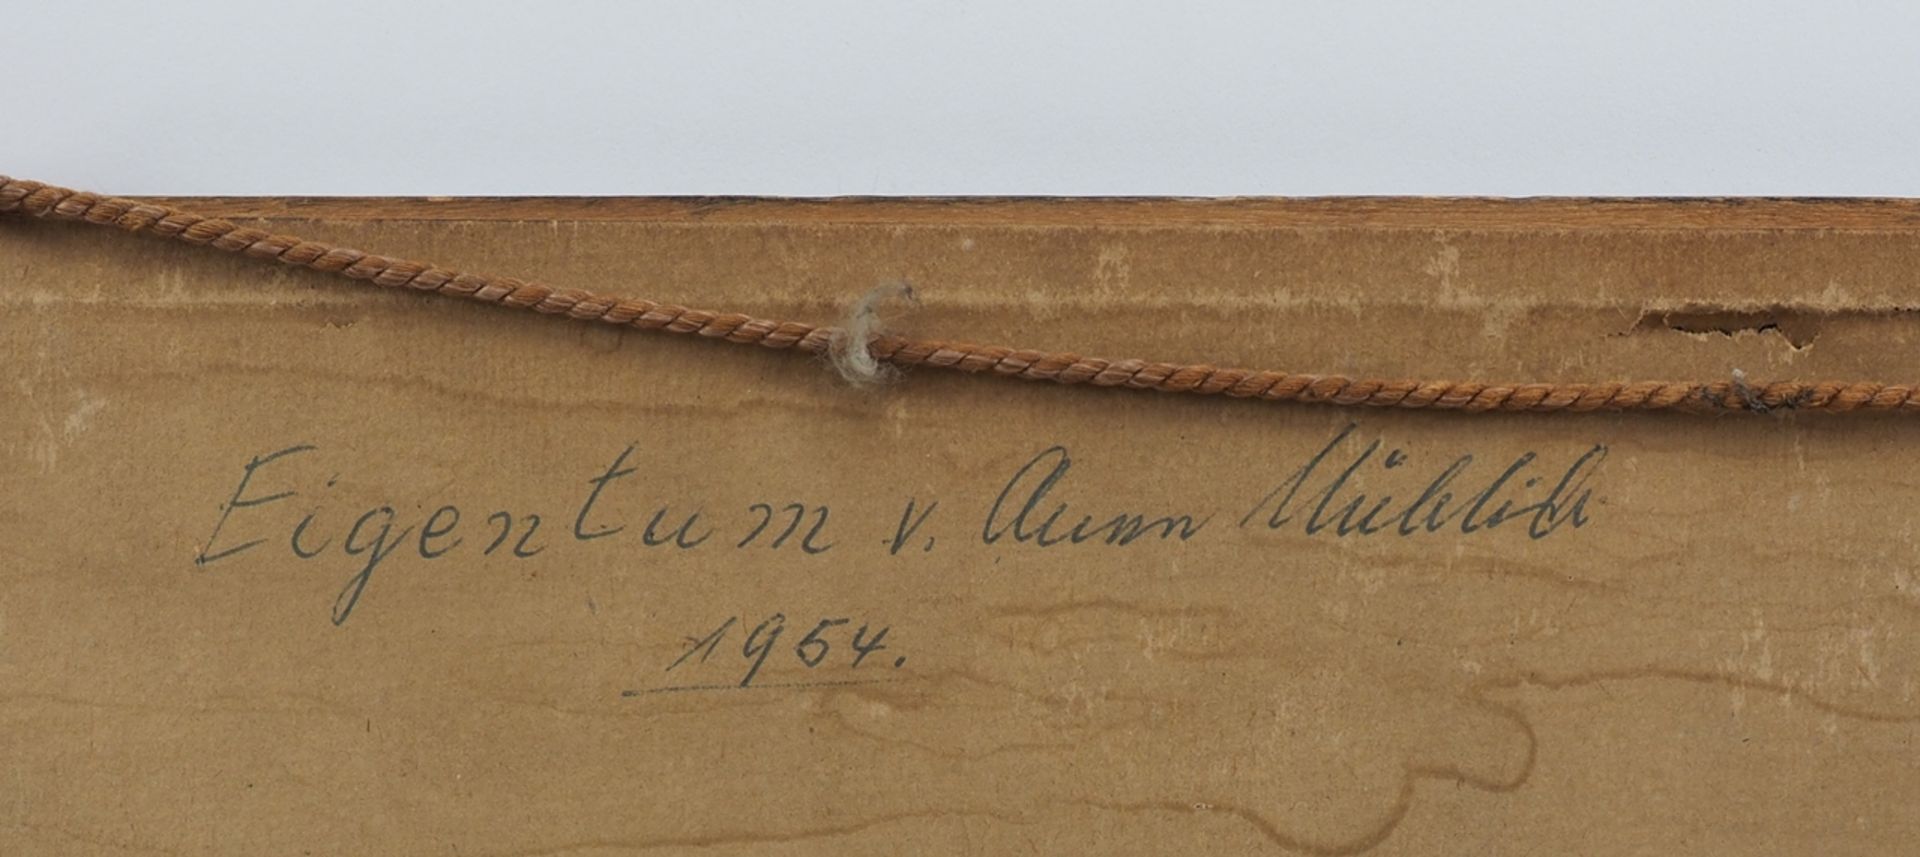 Eigentum v. Ann Mühlich
1954.